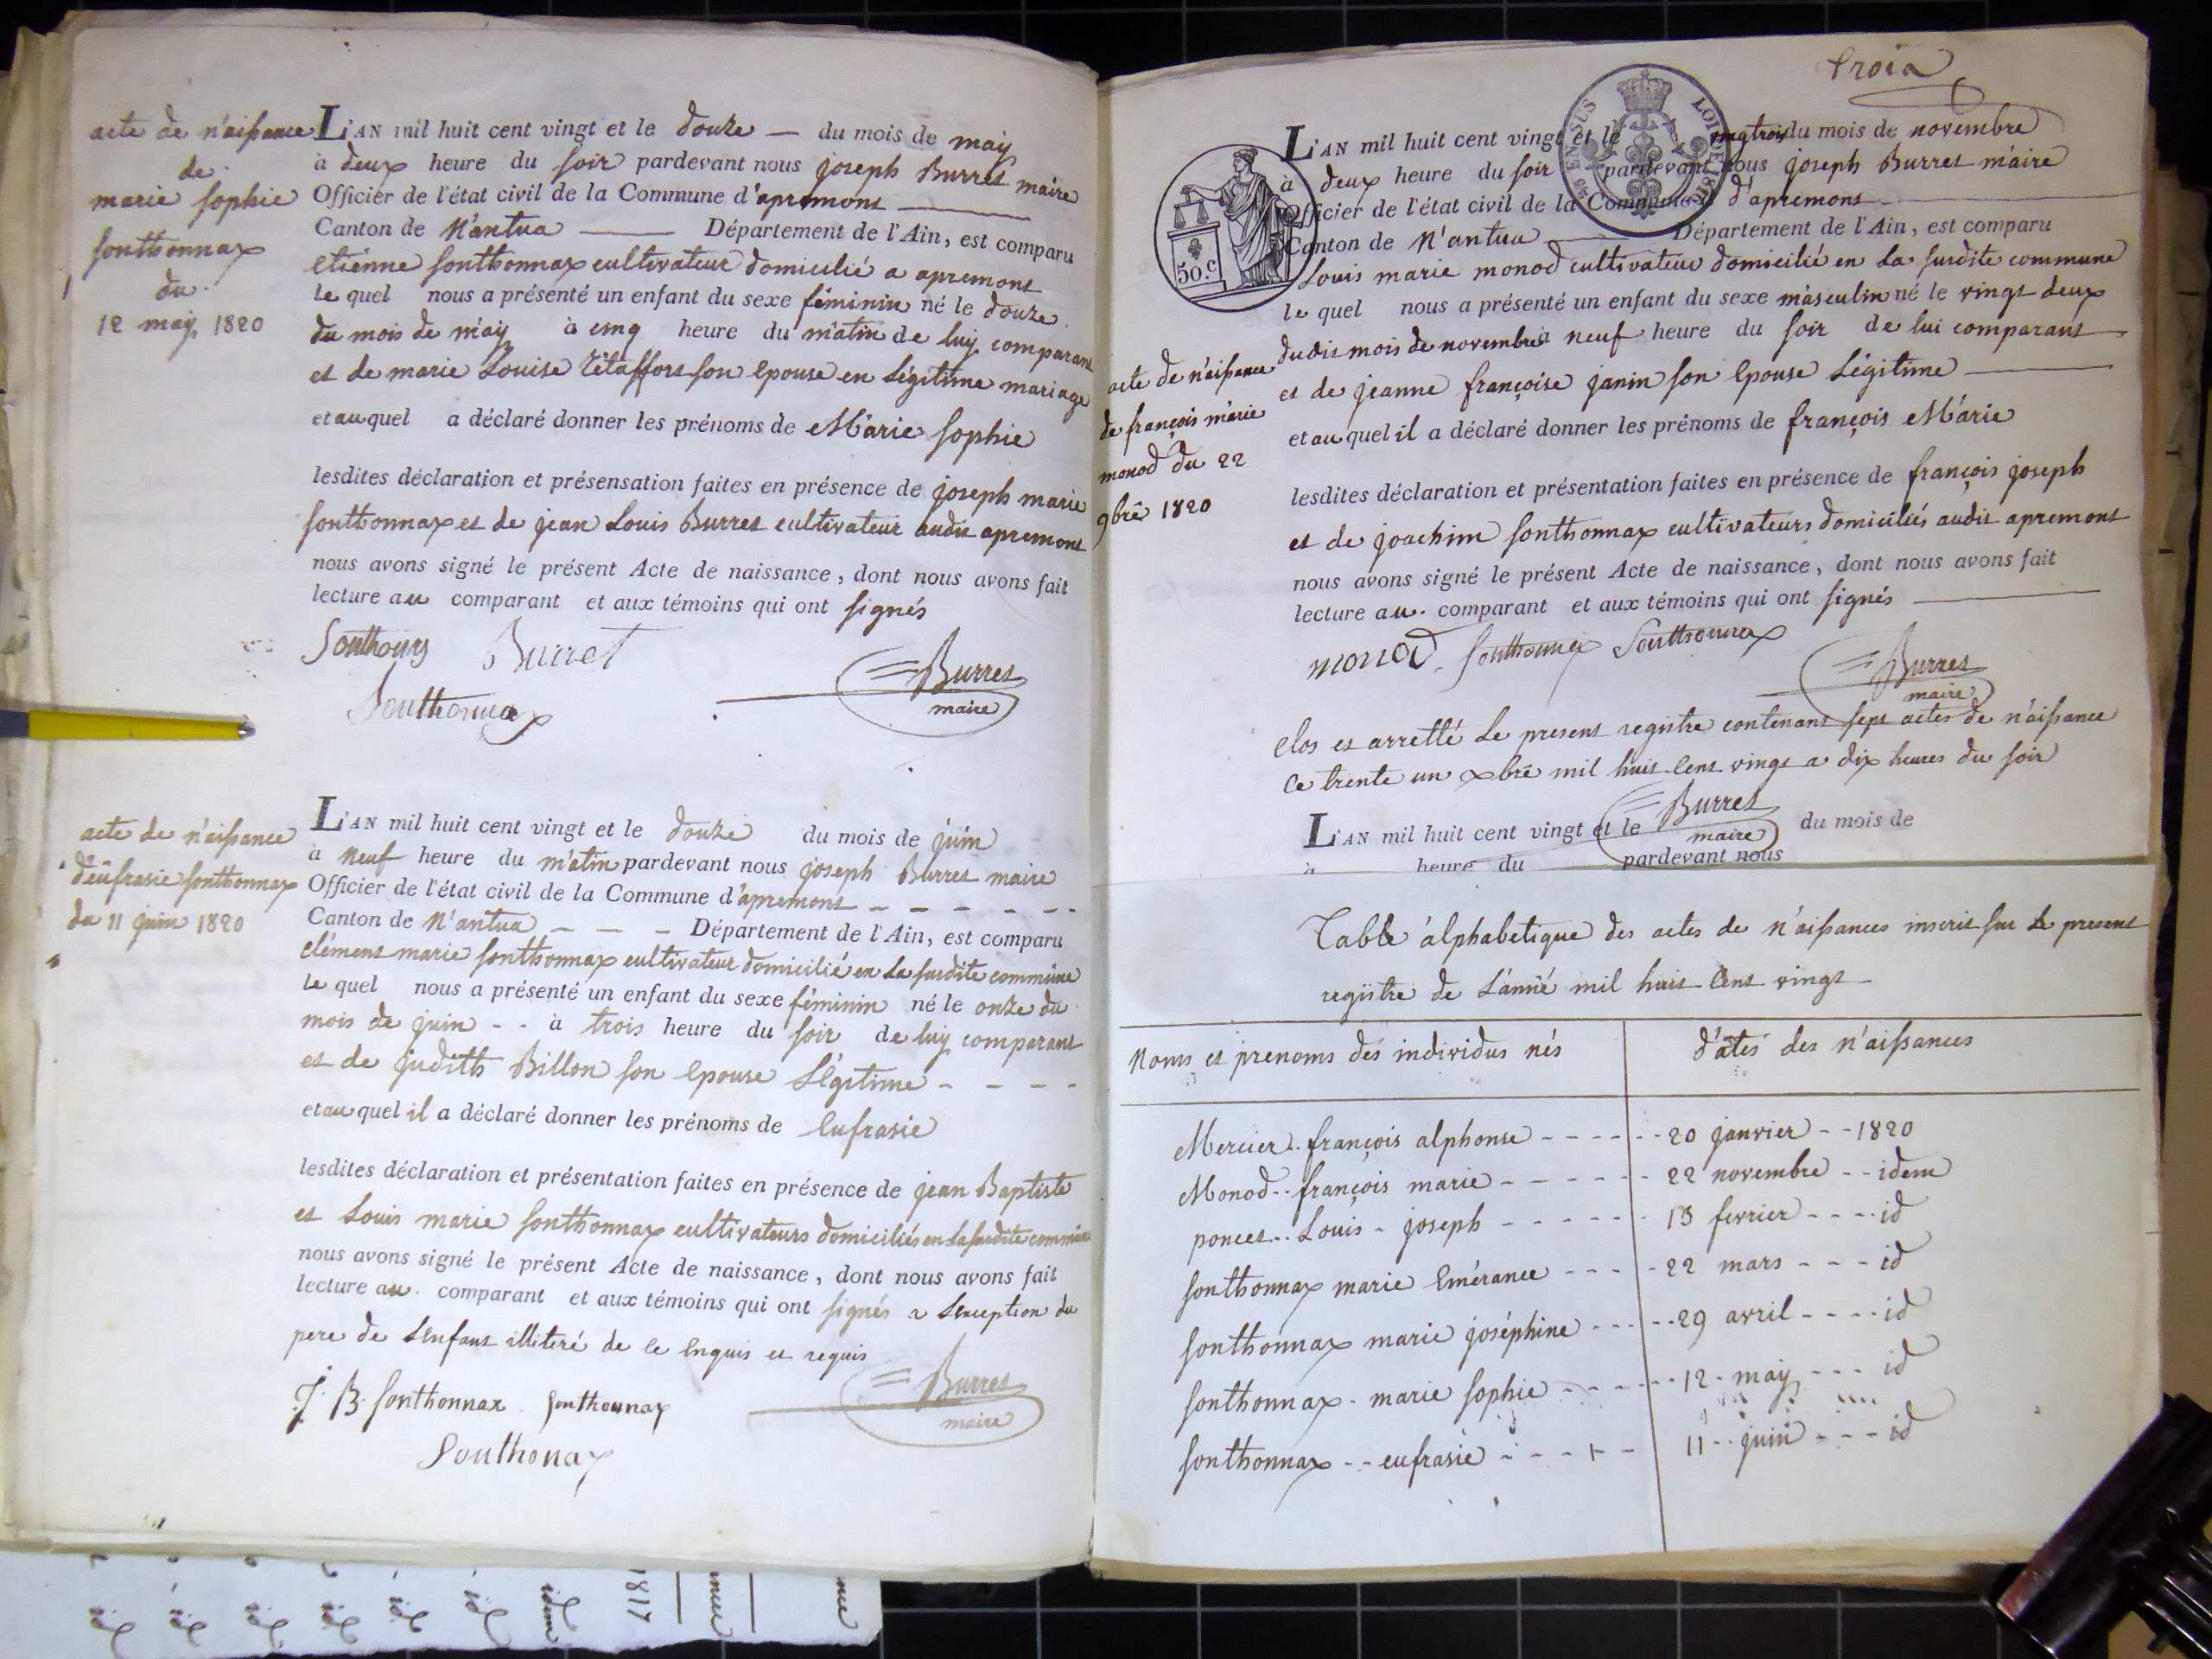 acte de n'aissance
de
marie sophie
sonthonnax
du
12 may 1820
L'AN mil huit cent vingt et le douze — du mois de may
à deux heure du soir pardevant nous joseph Burret maire
Officier de l'état civil de la Commune d'apremont
Canton de N'antua Département de l'Ain, est comparu
etienne sonthonnax cultivateur domicilié a apremont
le quel nous a présenté un enfant du sexe féminin né le douze
du mois de may à cinq heure du matin de luy comparant
et de marie Louise Tétaffort son epouse en Légitime mariage
et au quel a déclaré donner les prénoms de Marie sophie
lesdites déclaration et présensation faites en présence de joseph marie
sonthonnax et de jean Louis Burret cultivateur audit apremont
nous avons signé le présent Acte de naissance, dont nous avons fait
lecture au comparant et aux témoins qui ont signés
Burret
Sonthonnax
Burret
maire
acte de n'aissance
d'eufrasie sonthonnax
du 11 juin 1820
L'AN mil huit cent vingt et le douze du mois de juin
à neuf heure du m'atin pardevant nous joseph Burret maire
Officier de l'état civil de la Commune d'apremont
Canton de N'antua Département de l'Ain, est comparu
clément marie sonthonnax cultivateur domicilié en La susdite commune
le quel nous a présenté un enfant du sexe féminin né le onze du
mois de juin - - à trois heure du soir de luy comparant
et de judith Billon son epouse Légitime - - - -
et au quel il a déclaré donner les prénoms de eufrasie
lesdites déclaration et présentation faites en présence de jean Baptiste
et Louis marie sonthonnax cultivateurs domiciliés en La susdite commune
nous avons signé le présent Acte de naissance, dont nous avons fait
lecture au comparant et aux témoins qui ont signés a Lexception du
pere de Lenfant illiteré de ce enquis et requis
J. B. sonthonnax sonthonnax
Burret
maire
Sonthonax
trois
50.c
EN SUS
LOI DE 18
L'AN mil huit cent vingt et le vingtrois du mois de novembre
à deux heure du soir pardevant nous joseph Burret maire
Officier de l'état civil de la Commune d'apremont
Canton de N'antua Département de l'Ain, est comparu
Louis marie monod cultivateur domicilié en La susdite commune
le quel nous a présenté un enfant du sexe masculin né le vingt deux
dudit mois de novembre à neuf heure du soir de lui comparant
et de jeanne françoise janin son epouse Légitime
et au quel il a déclaré donner les prénoms de françois Marie
acte de n'aissance
de françois marie
monod du 22
9bre 1820
lesdites déclaration et présentation faites en présence de françois joseph
et de joachim sonthonnax cultivateurs domiciliés audit apremont
nous avons signé le présent Acte de naissance, dont nous avons fait
lecture au comparant et aux témoins qui ont signés
monod sonthonnax Sonthonnax
Burret
maire
Clos et arretté Le present registre contenant sept actes de n'aissance
Ce trente un xbre mil huit Cent vingt a dix heures du soir
Burret
maire
L'AN mil huit cent vingt et le du mois de
à heure du pardevant nous
Table alphabetique des actes de n'aissances inscrit sur Le present
registre de L'année mil huit Cent vingt
Noms et prenoms des individus nés d'ates des n'aissances
Mercier . . françois alphonse - - - - - - 20 janvier - - 1820
Monod - - françois marie - - - - - - 22 novembre - - idem
poncet . . Louis - joseph - - - - - - 13 fevrier - - - - id
sonthonnax marie Emérance - - - - 22 mars - - - id
sonthonnax marie joséphine - - - - - 29 avril - - - - id
sonthonnax - marie sophie - - - - - 12 - may - - - id
sonthonnax - - eufrasie - - - - - 11 - - juin - - - id
1817
idem
id
id
id
id
id
id